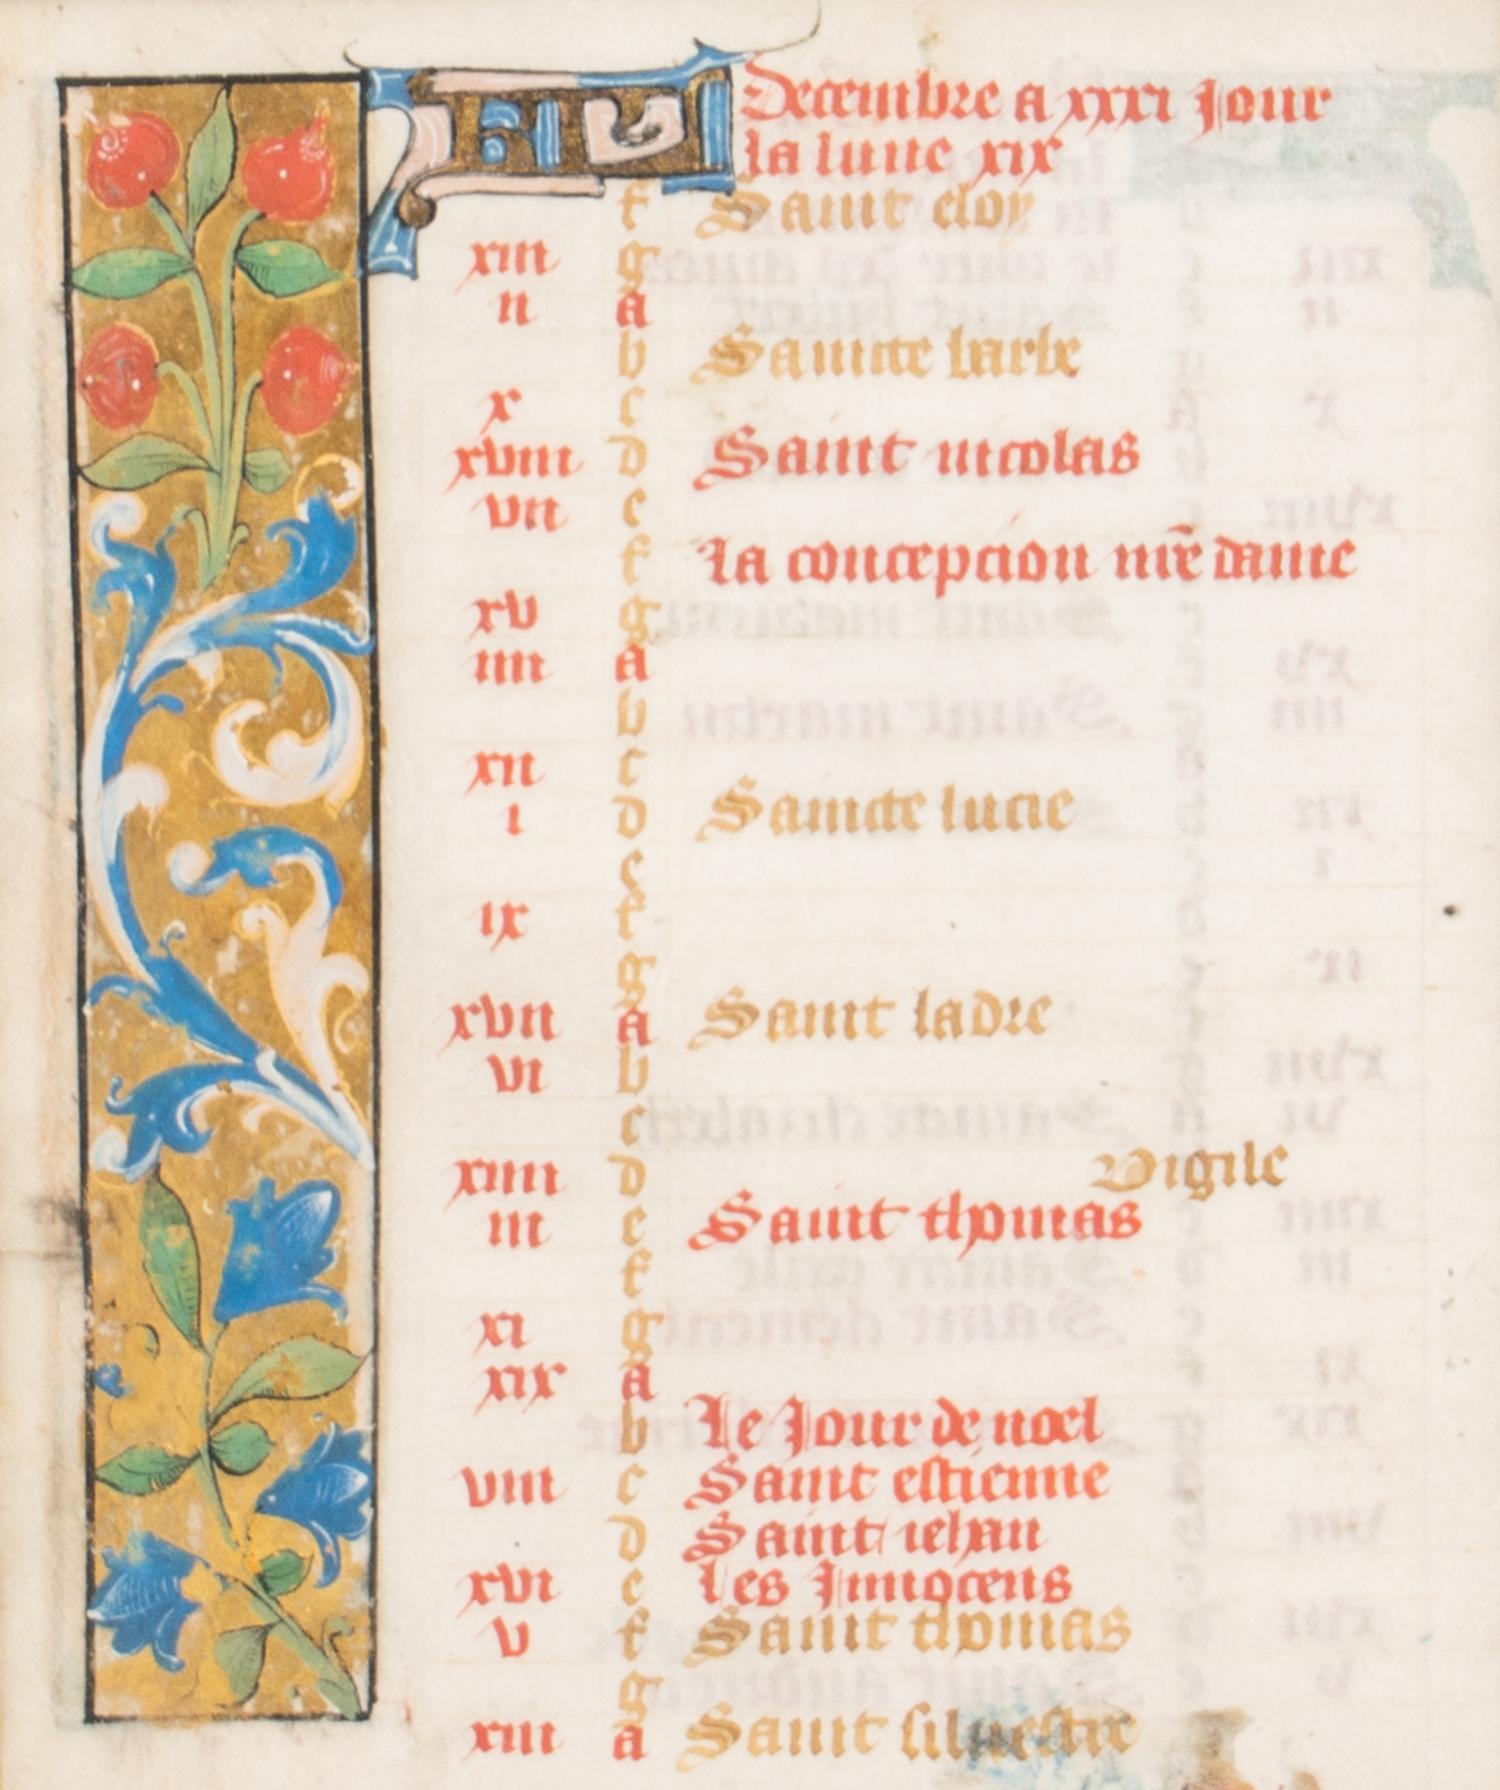 KL Decembre a xxxi Jour
la lune xix
f Saint eloy
xiii g
ii a
b Saincte barbe
x c
xviii d Saint nicolas
vii e
f la concepcion nr̄e dame
xv g
iiii a
b
xii c
i d Saincte lucie
e
ix f
g
xvii a Saint ladre
vi b
c
xiiii d Vigile
iii e Saint thomas
f
xi g
xix a
b Le Jour de noel
viii c Saint estienne
d Saint iehan
xvi e Les Innocens
v f Saint thomas
g
xiii a Saint silvestre